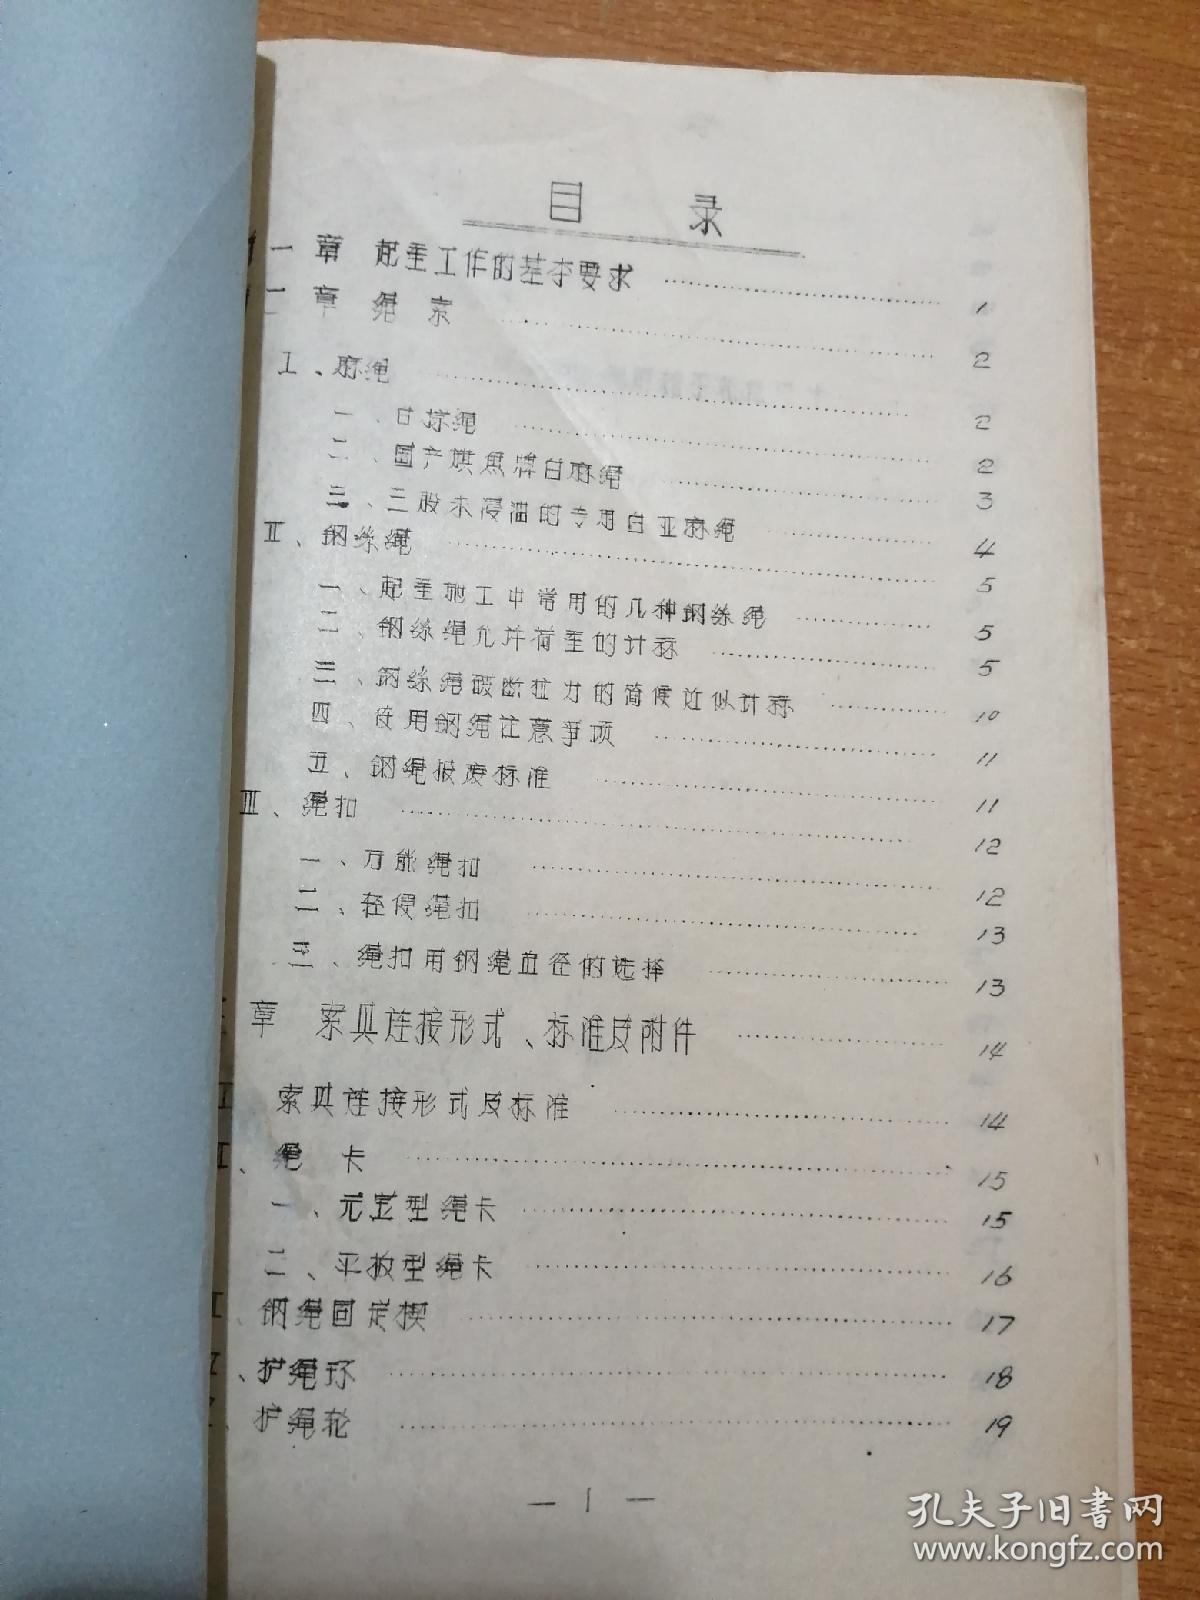 目 录
一章 起重工作的基本要求 1
二章 绳索 2
I、麻绳 2
一、白棕绳 2
二、国产旗鱼牌白麻绳 3
三、三股未浸油的专用白亚麻绳 4
II、钢丝绳 5
一、起重施工中常用的几种钢丝绳 5
二、钢丝绳允许荷重的计标 5
三、钢丝绳破断拉力的简便近似计标 10
四、使用钢绳注意事项 11
五、钢绳报废标准 11
III、绳扣 12
一、万能绳扣 12
二、轻便绳扣 13
三、绳扣用钢绳直径的选择 13
章 索具连接形式、标准及附件 14
索具连接形式及标准 14
、绳 卡 15
一、元宝型绳卡 15
二、平板型绳卡 16
、钢绳固定楔 17
、护绳环 18
、护绳轮 19
— 1 —
孔夫子旧书网
www.kongfz.com